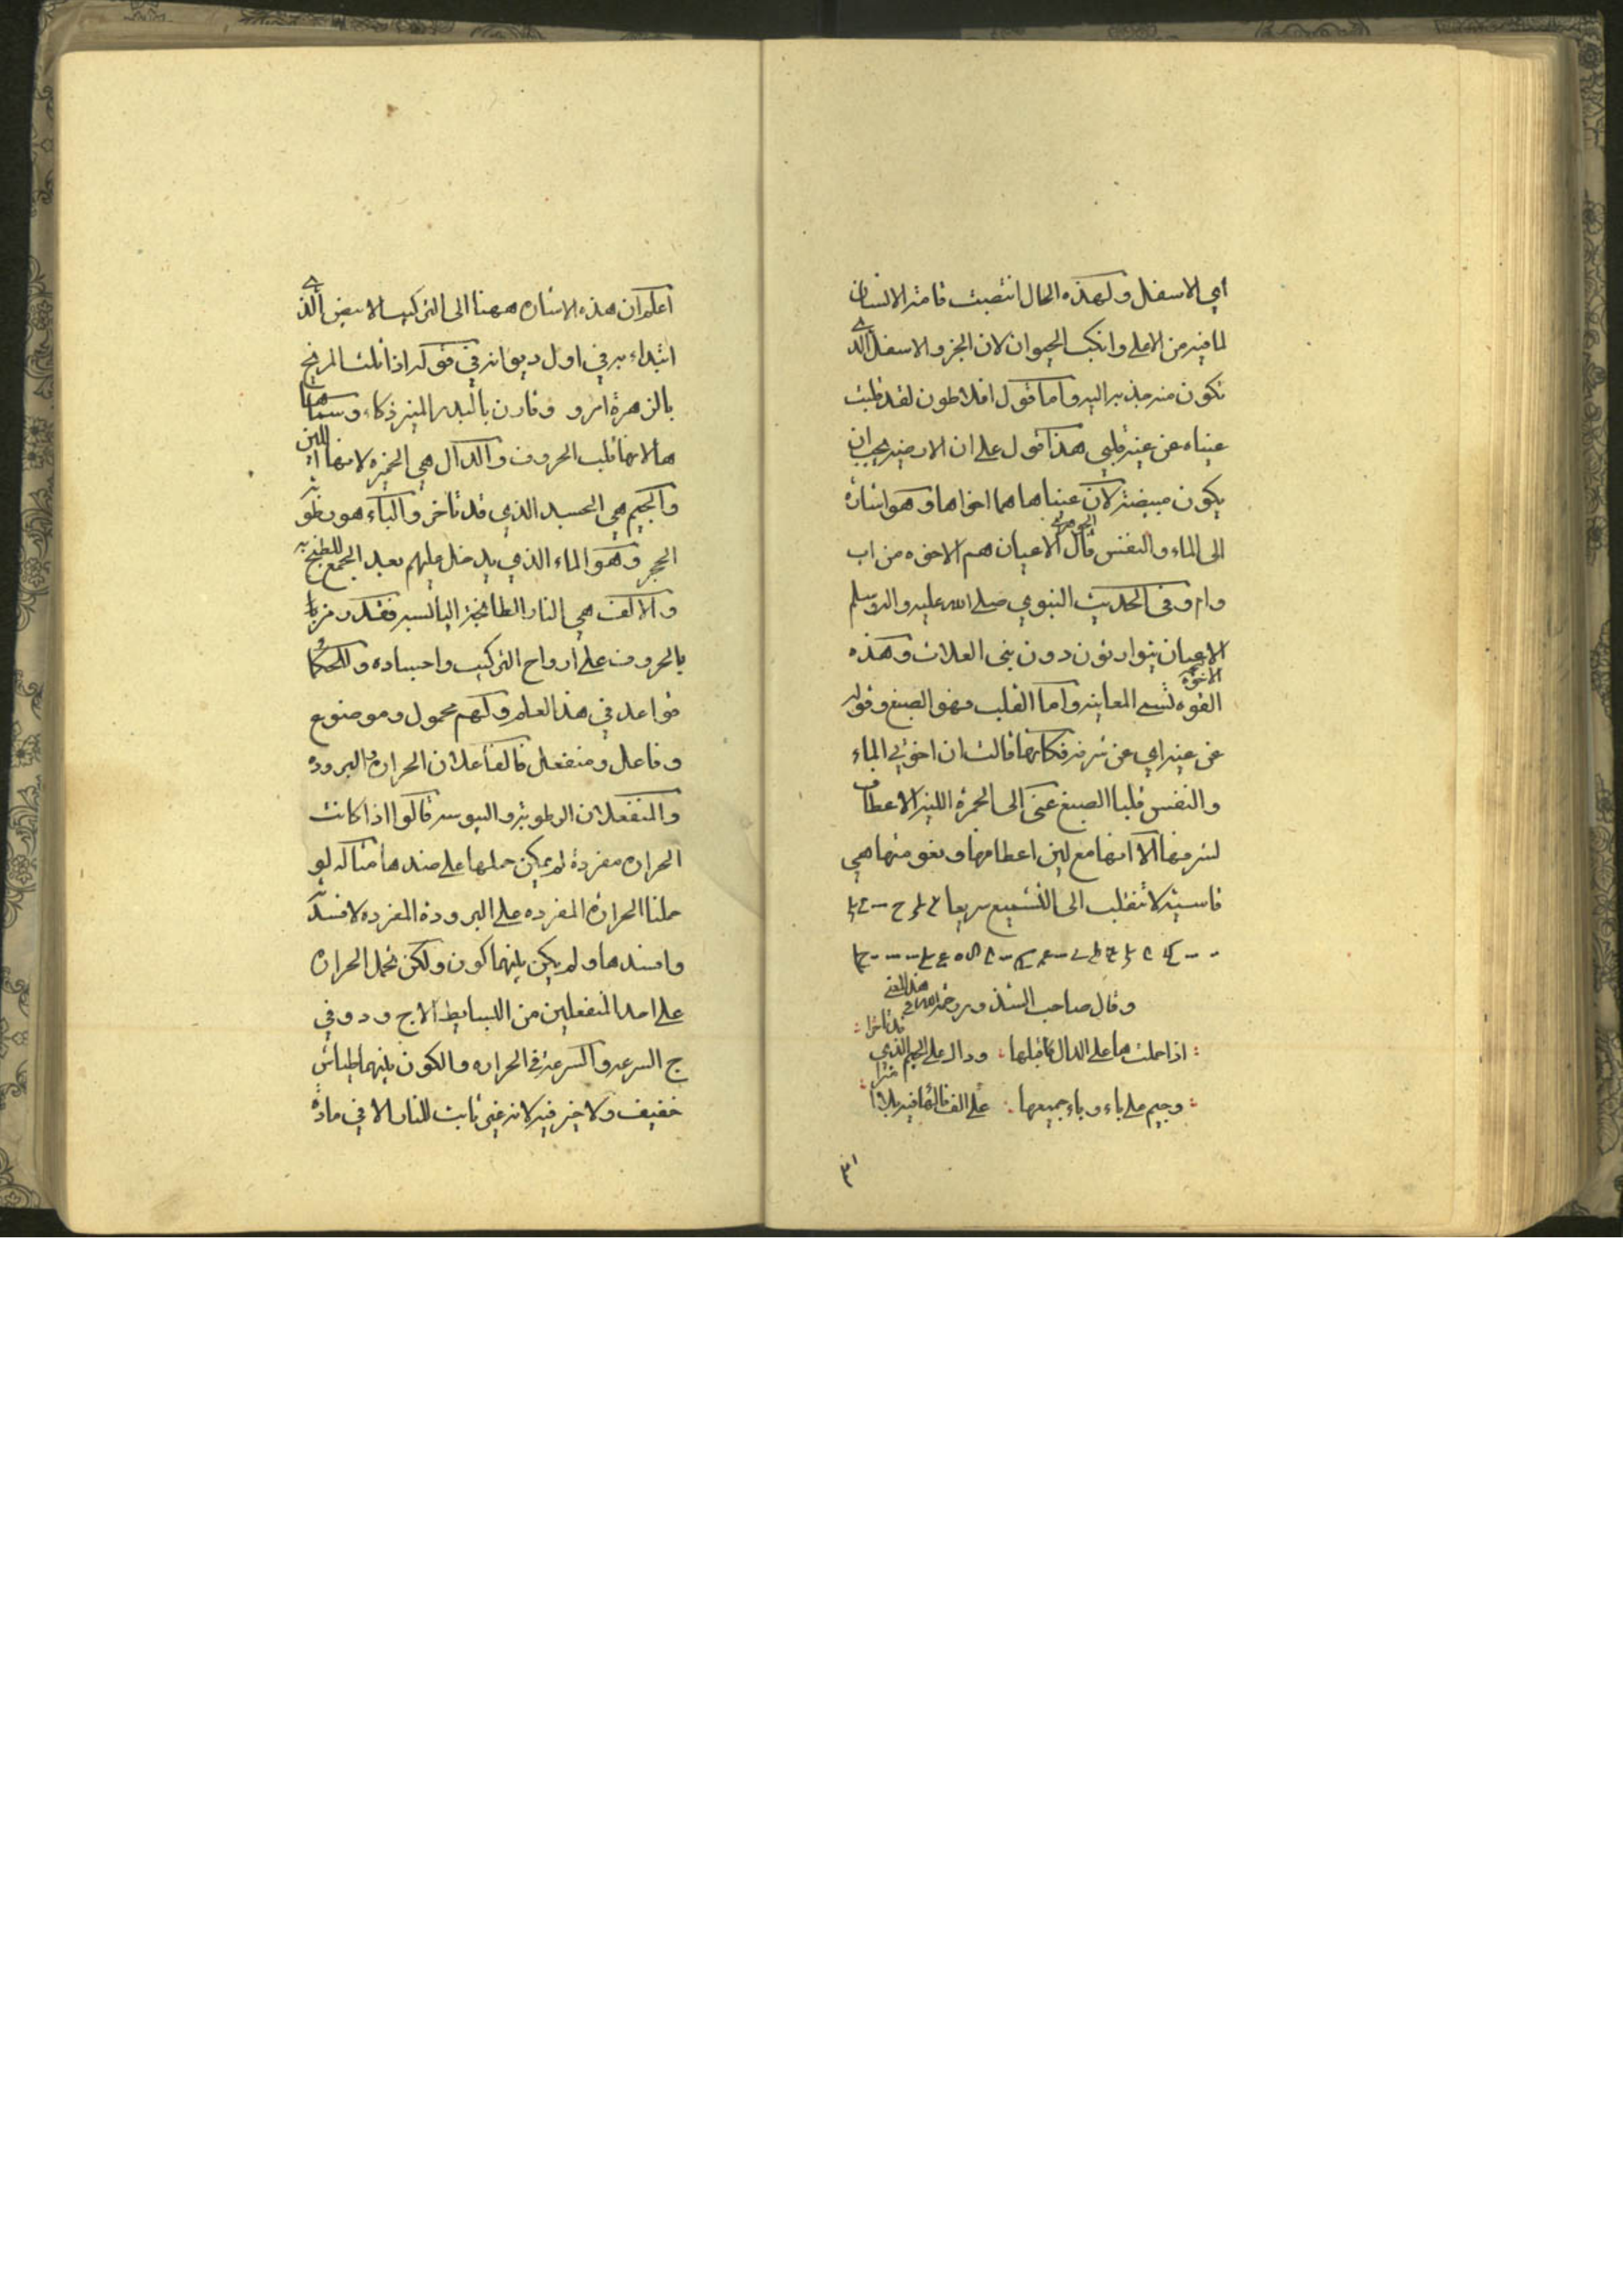 اي الاسفل ولهذه الحال انتصبت قامة الانسان
لما فيه من الاعلى وانكب الحيوان لان الجزو الاسفل الذي
تكون منه جذبه اليه واما قول افلاطون لقد قلبت
عيناه عن عينه قلبي هذا قول على ان الارضية يجب ان
يكون مبيضة لان عيناها هما اخواها وهو اشارة
الى الماء والنفس قال الجوهري الاعيان هم الاخوه من اب
وام وفي الحديث النبوي صلى الله عليه واله وسلم
الاعيان يتوارثون دون بني العلات وهذه
الاخوة تسمى المعاينة واما القلب فهو الصبغ وقوله
عن عينه اي عن شرفه فكانها قالت ان اخوتي الماء
والنفس قلبا الصبغ عني الى الحمرة اللينة الاعطاف
لشرفها الا انها مع لين اعطافها ونعومتها هي
قاسية لا تنقلب الى التشميع سريعا
وقال صاحب الشذور رحمه الله في هذا المعنى
اذا حملت ها على الدال قابلها ودال على الجيم الذي قد تاخرا
وجيم على باء وباء جميعها على الف
اعلم ان هذه الاشاره ههنا الى التركيب الابيض الذي
ابتداء به في اول ديوانه في قوله اذا ثلث المريخ
بالزهرة امرو وقارن بالبدر المنير ذكاء وسماها
ها لانها قلب الحروف والدال هي الخميره لانها اللبن
والجيم هي الجسد الذي قد تاخر والباء هو رطوبة
الحجر وهو الماء الذي يدخل عليهم بعد الجمع للطبخ به
والالف هي النار الطابخة اليابسه فقد رمز بها
بالحروف على ارواح التركيب واجساده وللحكما
قواعد في هذا العلم ولهم محمول وموضوع
وفاعل ومنفعل فالفاعلان الحراره والبروده
والمنفعلان الرطوبة واليبوسه قالوا اذا كانت
الحراره مفردة لم يمكن حملها على ضدها مثاله لو
حملنا الحرارة المفرده على البرودة المفرده لافسدته
وافسدها ولم يكن بينهما كون ولكن نحمل الحراره
على احد المنفعلين من البسايط الا ج و د وفي
ج السرعه والسرعة في الحراره والكون بينهما طياش
خفيف ولا خير فيه لانه غير ثابت للنار الا في مادة